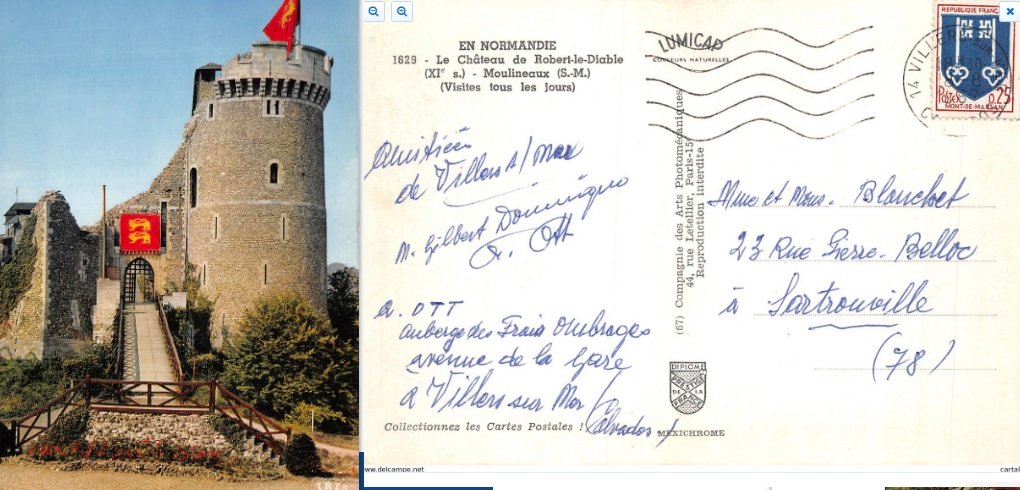 EN NORMANDIE
1629 - Le Château de Robert-le-Diable
(XIe s.) - Moulineaux (S.-M.)
(Visites tous les jours)
LUMICAP
COULEURS NATURELLES
REPUBLIQUE FRANÇ
Postes 0,25
MONT-DE-MARSAN
14 VILLERS SUR
Amitiées
de Villers s/ Mer
M. Gilbert Dominique
Ott
a. OTT
auberge des Frais Ombrages
avenue de la Gare
a Villers sur Mer
(Calvados)
(67) Compagnie des Arts Photomécaniques
44, rue Letellier, Paris-15e
Reproduction interdite
Mme et Mons. Blanchet
23 Rue Pierre-Belloc
à Sartrouville
(78)
DIPLOME
PRESTIGE
DE LA
FRANCE
Collectionnez les Cartes Postales !
MEXICHROME
187
ww.delcampe.net
cartal